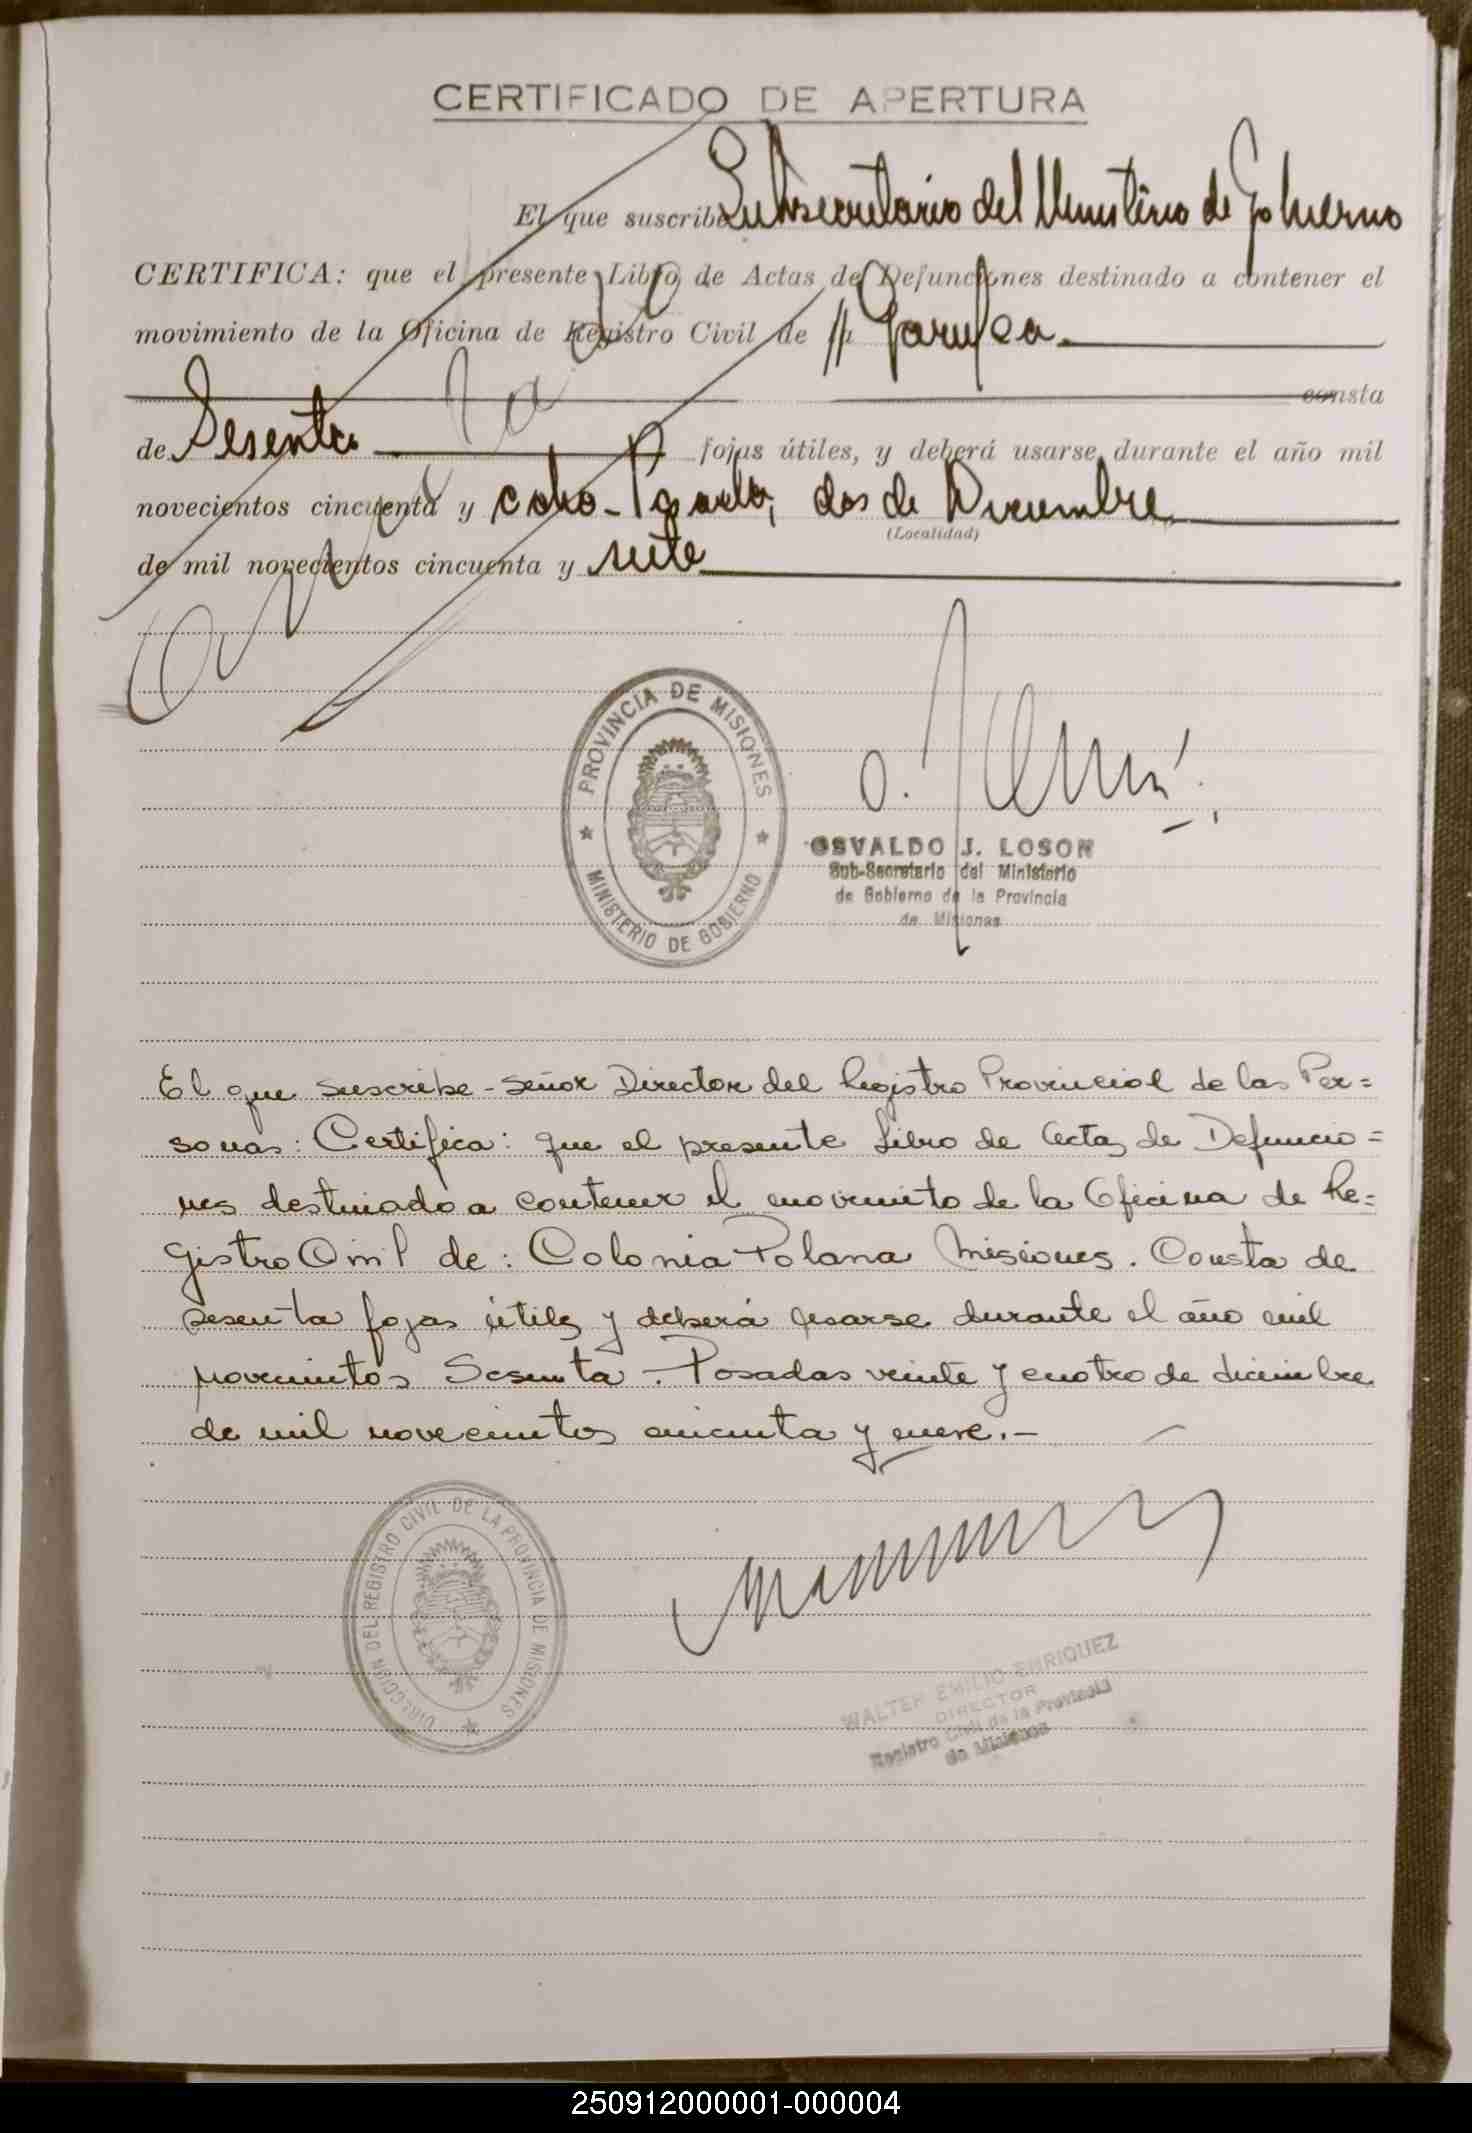 CERTIFICADO DE APERTURA
El que suscribe Subsecretario del Ministerio de Gobierno
CERTIFICA: que el presente Libro de Actas de Defunciones destinado a contener el
movimiento de la Oficina de Registro Civil de // Garupea
consta
de Sesenta fojas útiles, y deberá usarse durante el año mil
novecientos cincuenta y ocho - Posadas, dos de Diciembre
(Localidad)
de mil novecientos cincuenta y siete
Anulado
PROVINCIA DE MISIONES
MINISTERIO DE GOBIERNO
OSVALDO J. LOSON
Sub-Secretario del Ministerio
de Gobierno de la Provincia
de Misiones
El que suscribe - Señor Director del Registro Provincial de las Per=
sonas: Certifica: que el presente Libro de Actas de Defuncio=
nes destinado a contener el movimiento de la Oficina de Re=
gistro Civil de: Colonia Polana Misiones. Consta de
sesenta fojas útiles y deberá usarse durante el año mil
novecientos Sesenta. - Posadas veinte y cuatro de diciembre
de mil novecientos cincuenta y nueve. -
DIRECCION DEL REGISTRO CIVIL DE LA PROVINCIA DE MISIONES
WALTER EMILIO ENRIQUEZ
DIRECTOR
Registro Civil de la Provincia
de Misiones
250912000001-000004